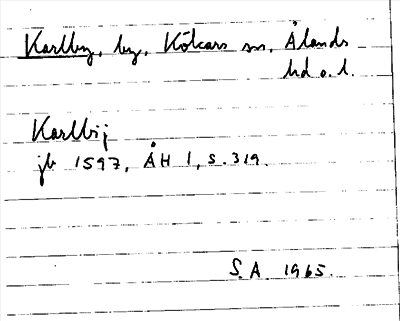 Karlby, by, Kökars sn, Ålands
hd o. l.
Karlbij
jb 1597, ÅH 1, s. 319.
S.A. 1965.